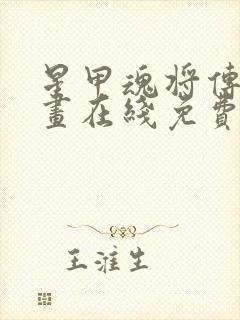 星甲魂将傳
畫在綫免費
王淮生